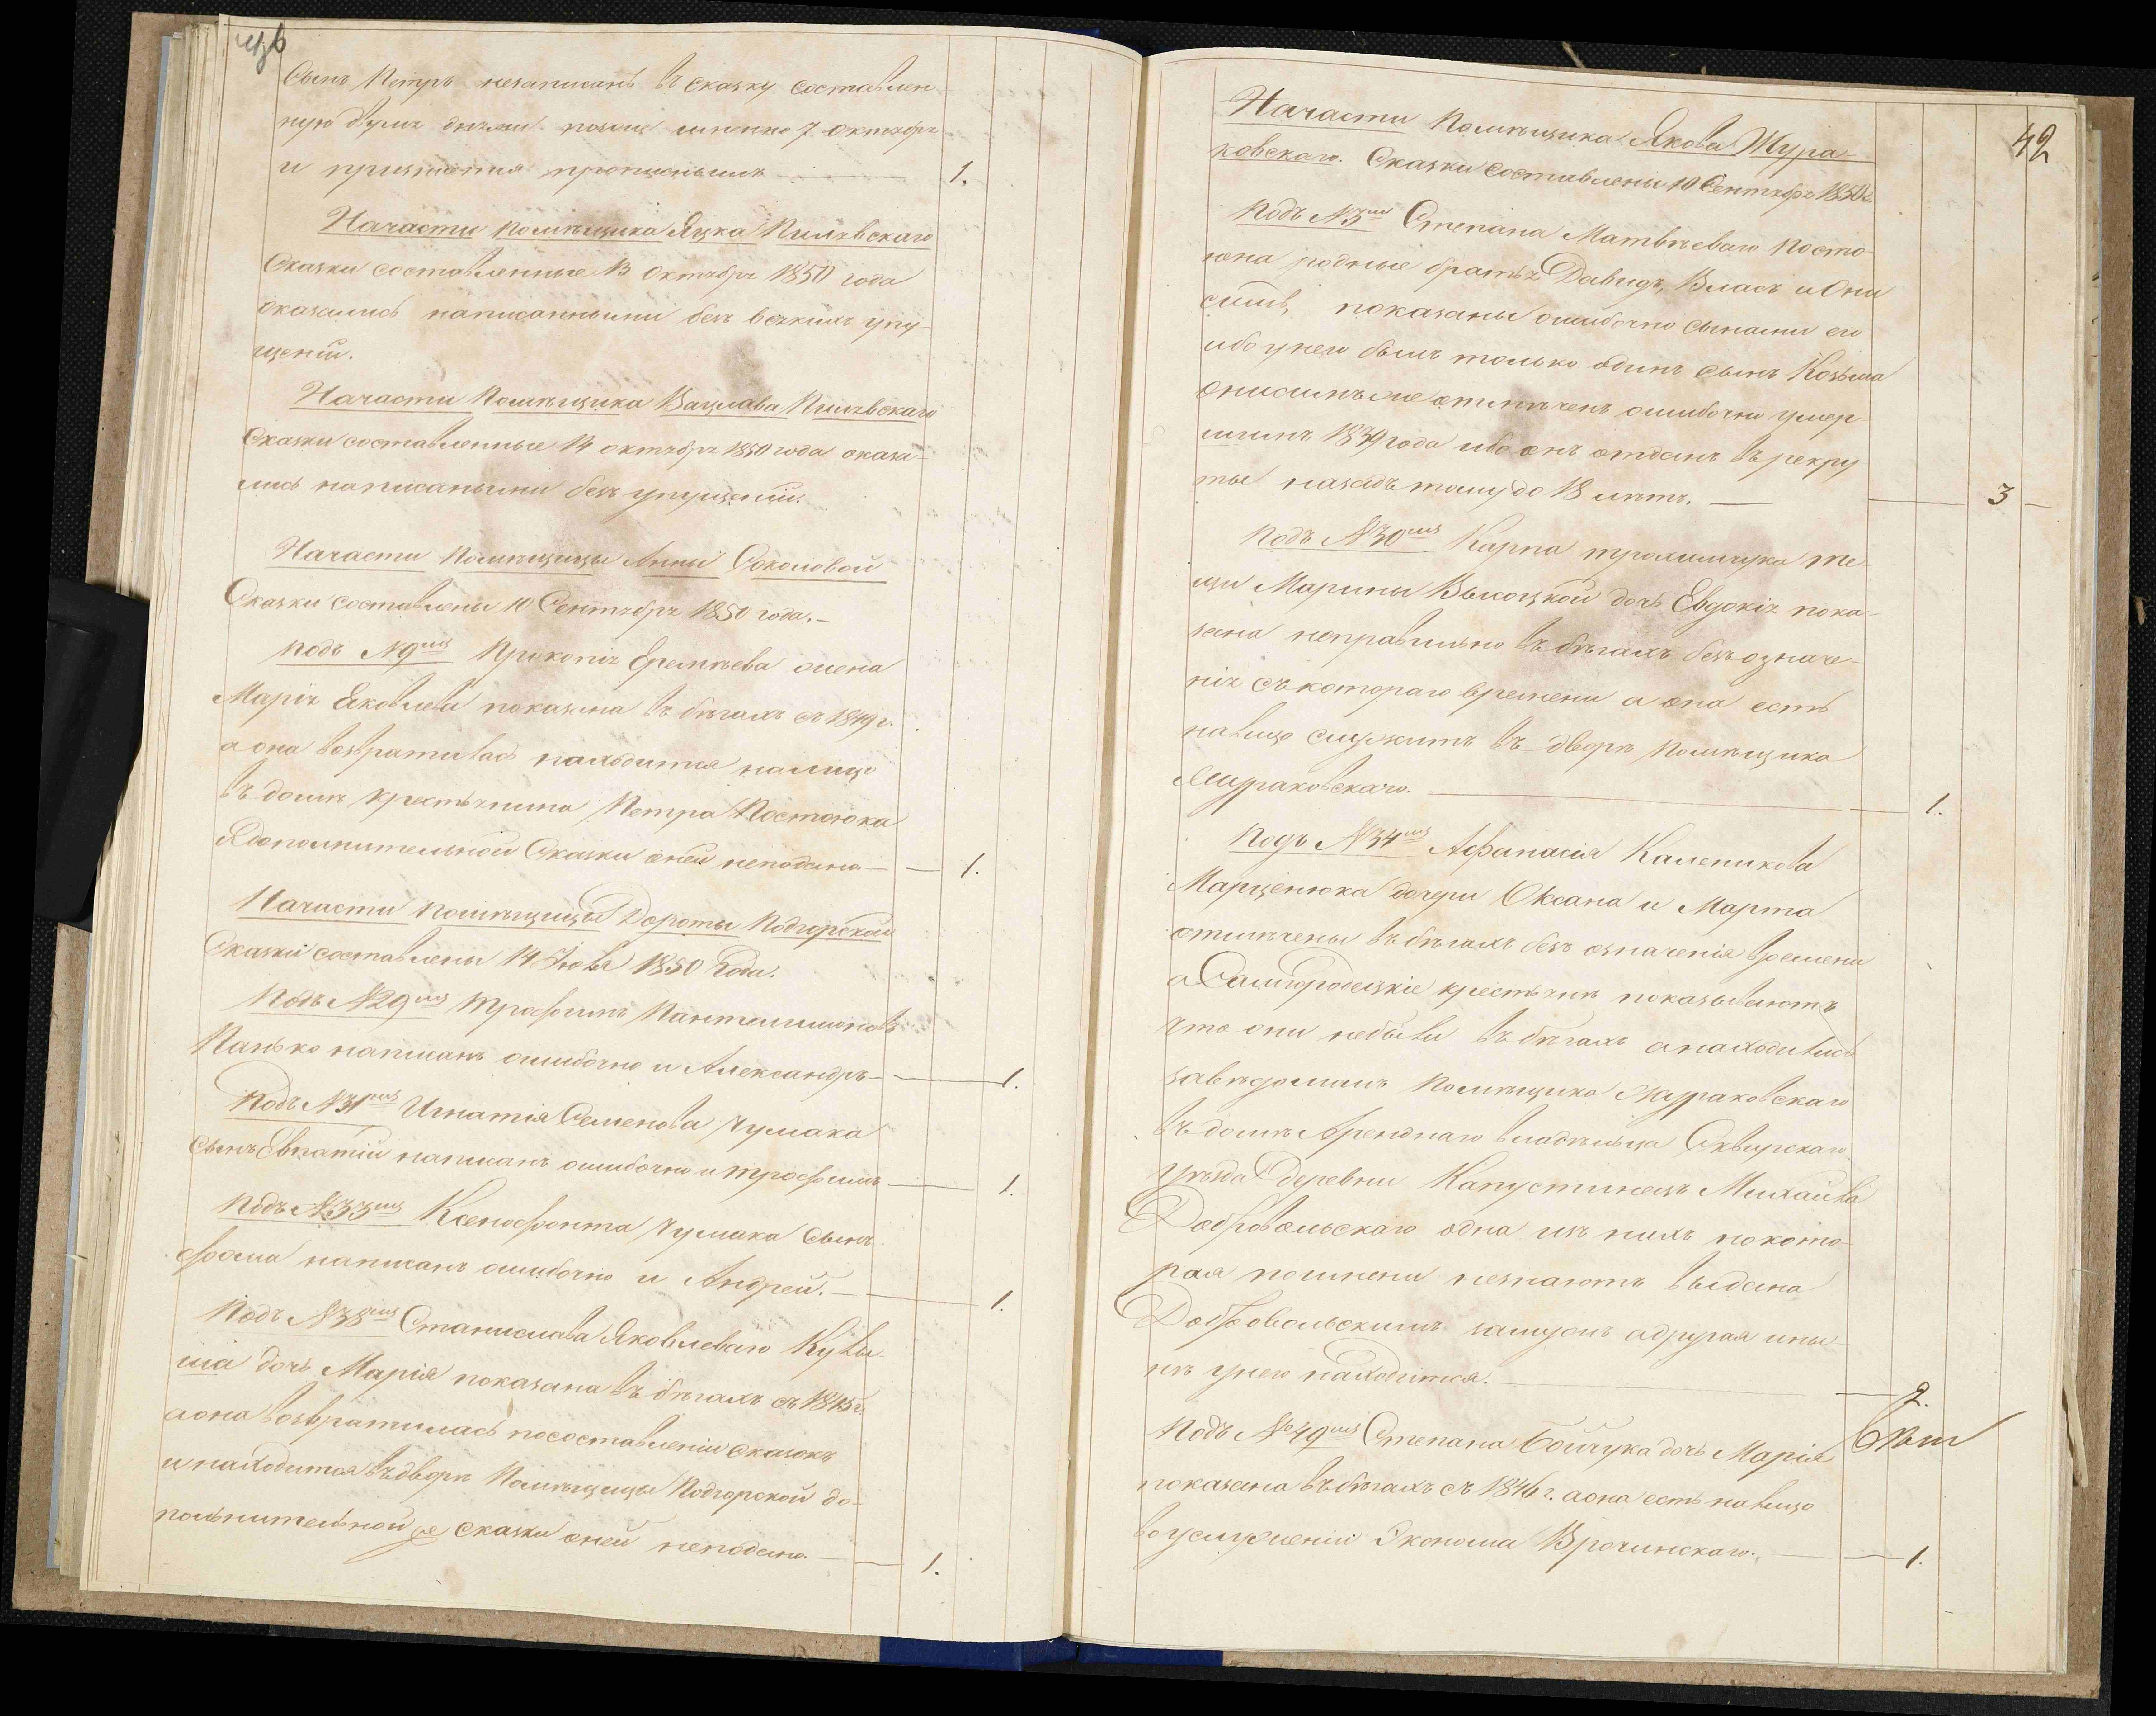 Сынъ Петръ незаписанъ въ сказку составлен
ную двумя днями позже именно 7 октября
и признается прописнымъ 1.
Начасти помѣщика Яцка Пилявскаго
Сказки составленные 13 Октября 1850 года
оказались написанными безъ всякихъ упу-
щеній.
Начасти Помѣщика Вацлава Пилявскаго
Сказки составленные 14 октября 1850 года оказа-
лись написаными безъ упущеній.
Начасти Помѣщицы Анны Соколовой
Сказки составлены 10 Сентября 1850 года.—
Подъ №9мъ Прокопія Еремѣева жена
Марія Яковлева показана въ бѣгахъ съ 1849 г.
а она возвратилась находится налицо
въ домѣ крестьянина Петра Постоюка
Адополнительной Сказки оней неподано — 1.
Начасти помѣщицы Дороты Подгорской
Сказки составлены 14 1850 Года.
Подъ №29мъ Трофимъ Пантелимоновъ
Панько написанъ ошибочно и Александръ — 1.
Подъ №31мъ Игнатія Семенова Чумака
сынъ Евпатій написанъ ошибочно и Трофимъ — 1.
Подъ №33мъ Ксенофонта Чумака Сынъ
Фома написанъ ошибочно и Андрей. — 1.
Подъ №38мъ Станислава Яковлеваго
дочь Марія показана въ бѣгахъ съ 1845 г.
аона возвратилась посоставленіи сказокъ
и находится въдворѣ Помѣщицы Подгорской до-
полнительной же сказки оней неподано. — 1.
42
Начасти Помѣщика Якова Жура-
ковскаго. Сказки составлены 10 Сентября 1850 г.
Подъ №3мъ Степана Матвѣеваго Посто
юка родные братья Давидъ, Власъ и Они
симъ, показаны ошибочно сынами его
ибо унего былъ только одинъ сынъ Козьма
Онисимъ же отмѣченъ ошибочно умер
шимъ 1849 года ибо онъ отданъ въ рекру
ты назадъ тому до 18 лѣтъ. — 3
Подъ №30мъ Карпа Трохимчука те
щи Марины Высоцкой дочь Евдокія пока-
зана неправильно въ бѣгахъ безъ означе-
нія съкотораго времени а она есть
налицо служитъ въ дворѣ помѣщика
Журакoвскаго. 1.
Подъ №34мъ Афанасія Каленикова
Марценюка дочери Оксана и Марта
отмѣчены въ бѣгахъ безъ означенія времени
а Самгородецкіе крестьяне показываютъ
что они небыли въ бѣгахъ анаходились
завѣдомымъ помѣщика Жураковскаго
въ домѣ Арендного владѣльца Сквирскаго
уѣзда Деревни Капустинецъ Михаила
Добровольскаго одна изъ нихъ покото-
рая поимени незнаютъ выдана
Добровольскимъ замужъ адругая инын
нѣ унего находится. 2.
Подъ №49мъ Степана Бойчука дочь Марія
показана въ бѣгахъ съ 1846 г. аона есть налицо
воуслуженіи Эконома Врочинскаго. — 1.